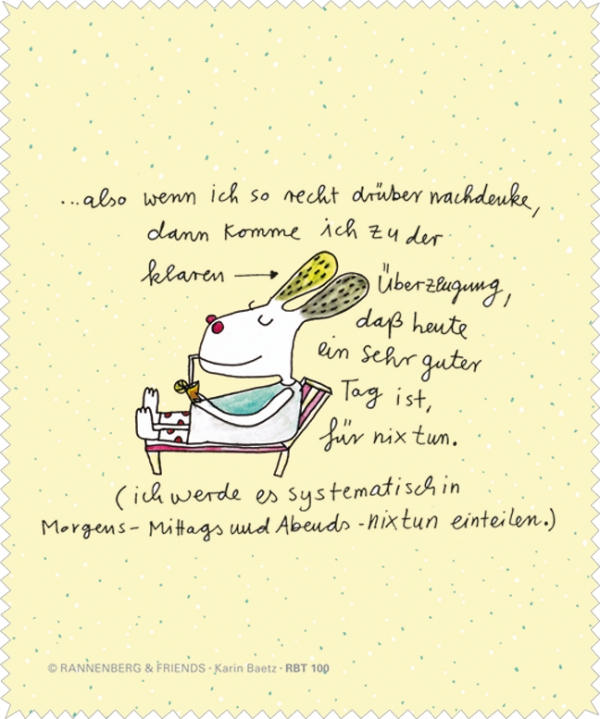 ...also wenn ich so recht drüber nachdenke,
dann komme ich zu der
klaren → Überzeugung,
daß heute
ein sehr guter
Tag ist,
für nix tun.
(ich werde es systematisch in
Morgens- Mittags und Abends -nixtun einteilen.)
© RANNENBERG & FRIENDS · Karin Baetz · RBT 100